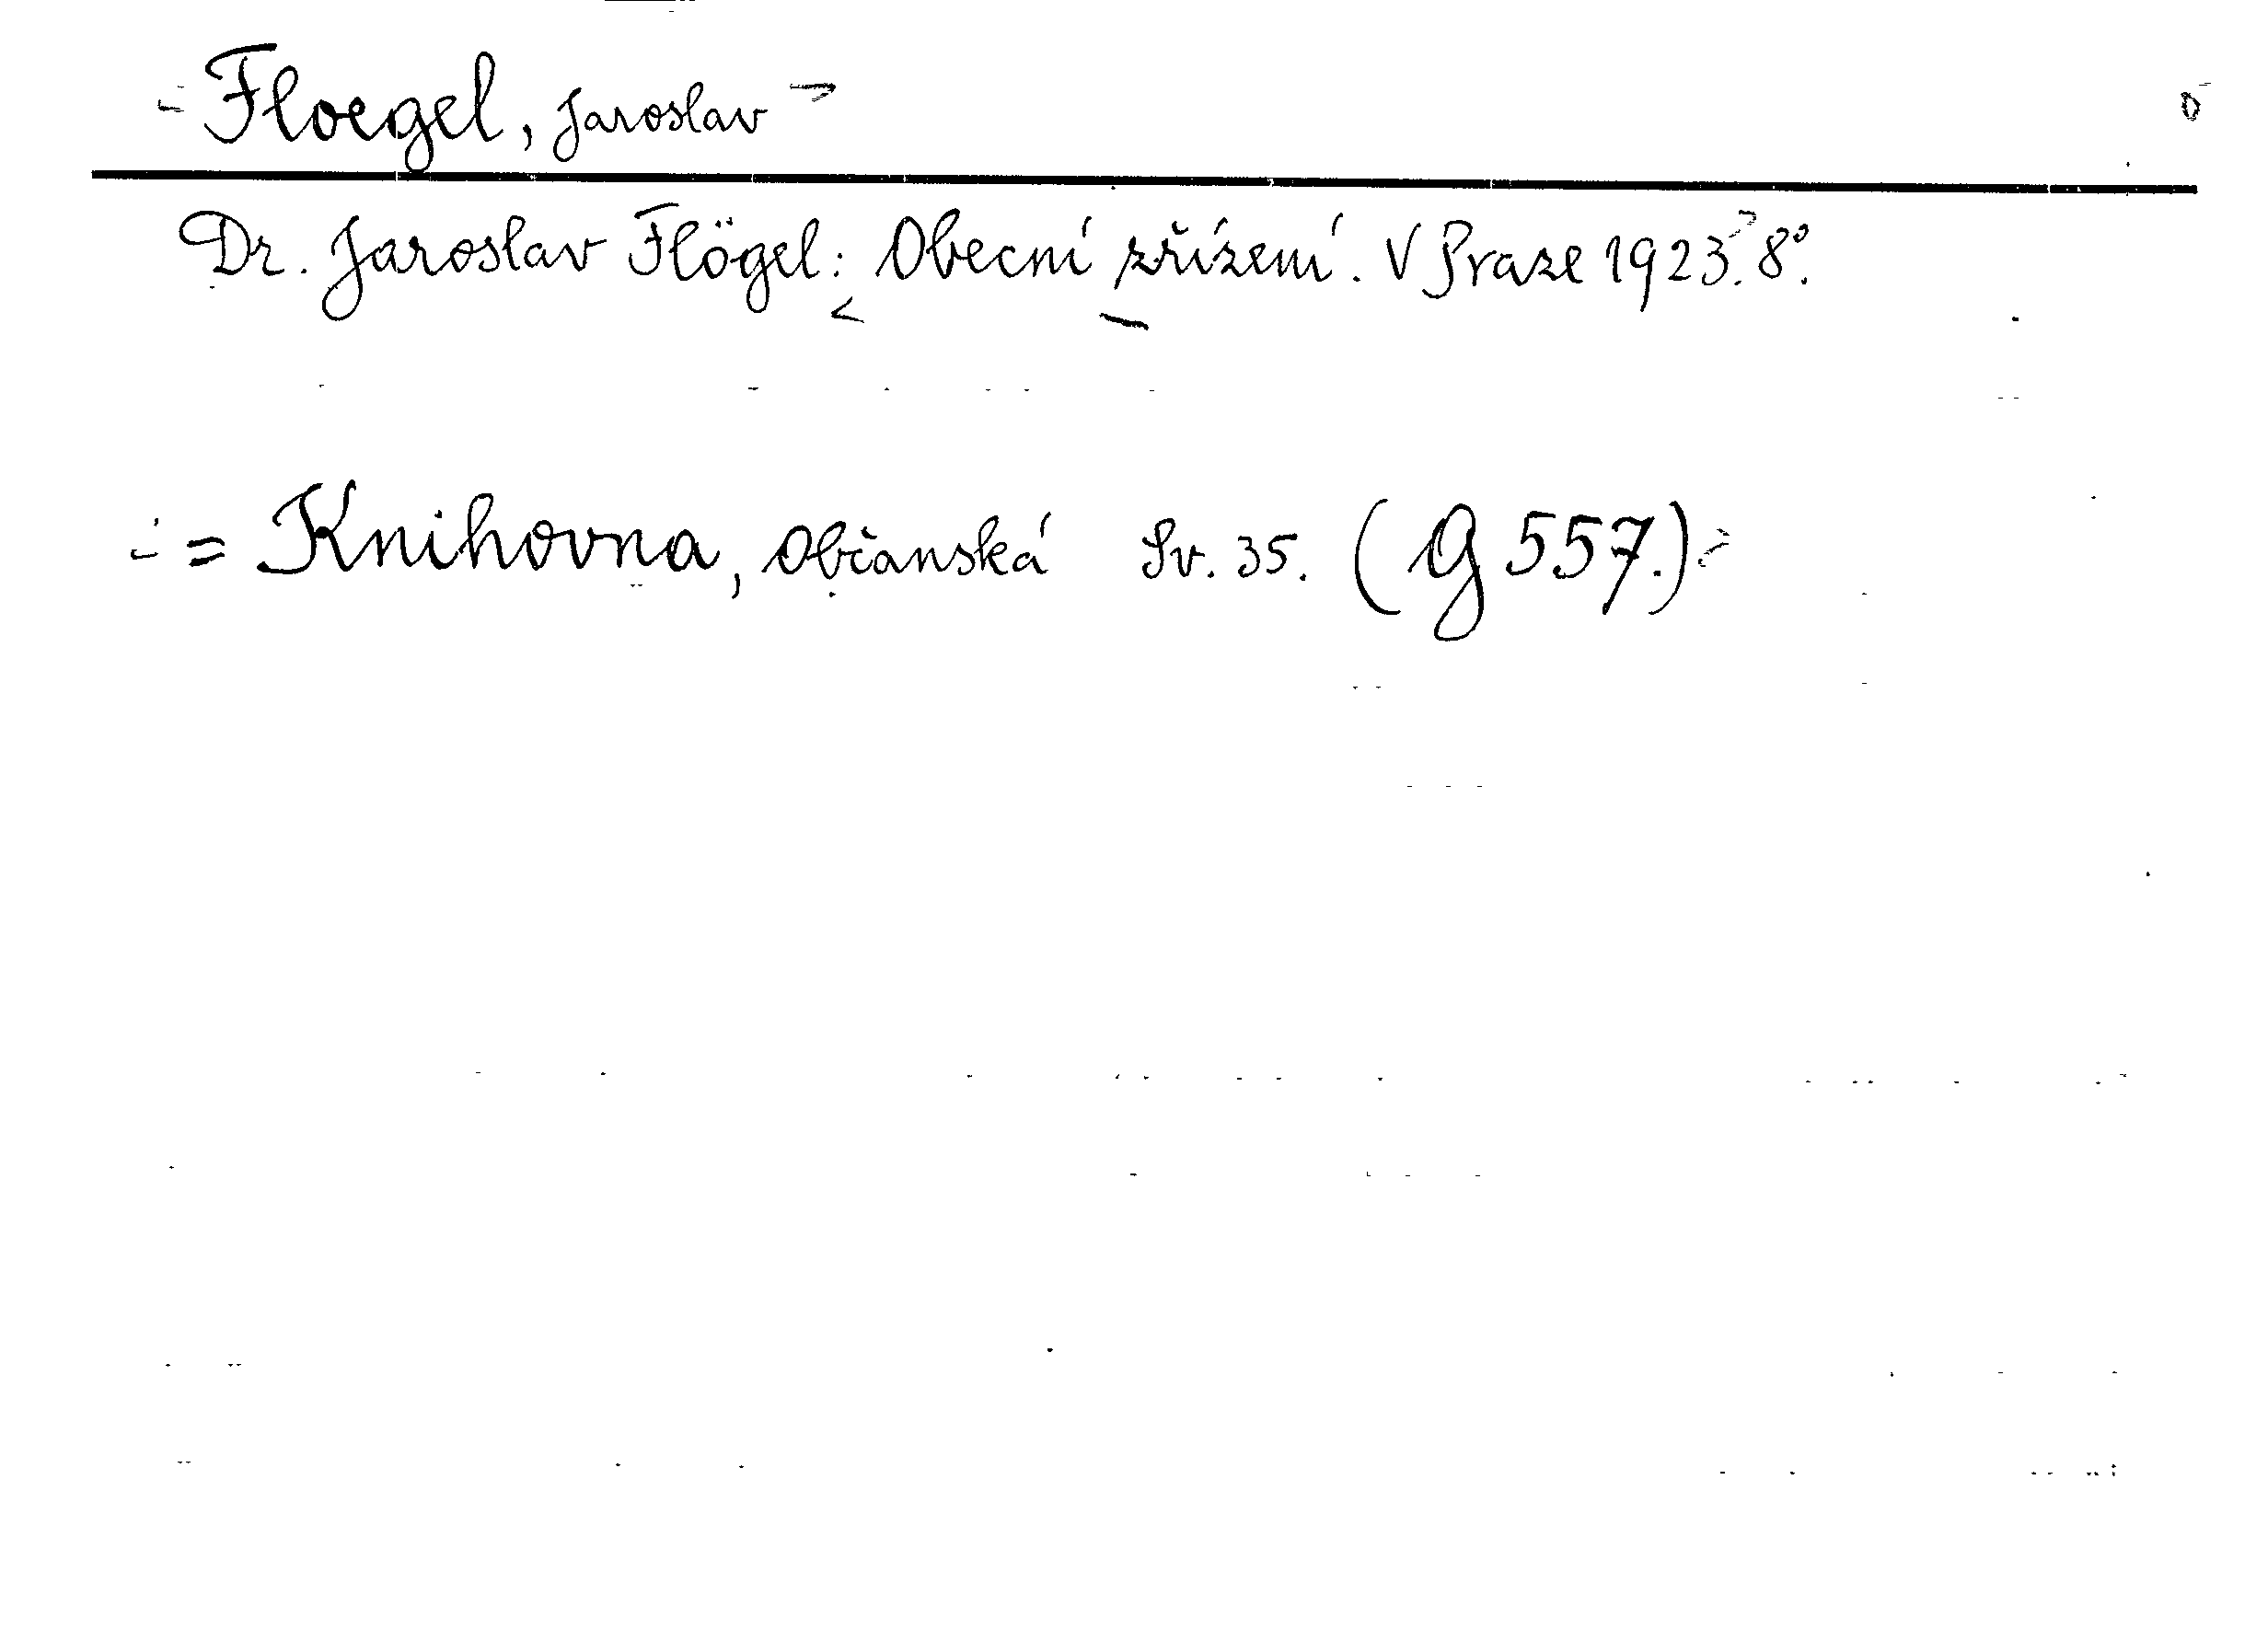 Floegel, Jaroslav
Dr. Jaroslav Flögel: Obecní zřízení. V Praze 1923. 8°.
= Knihovna, Občanská Sv. 35. (G 557.)